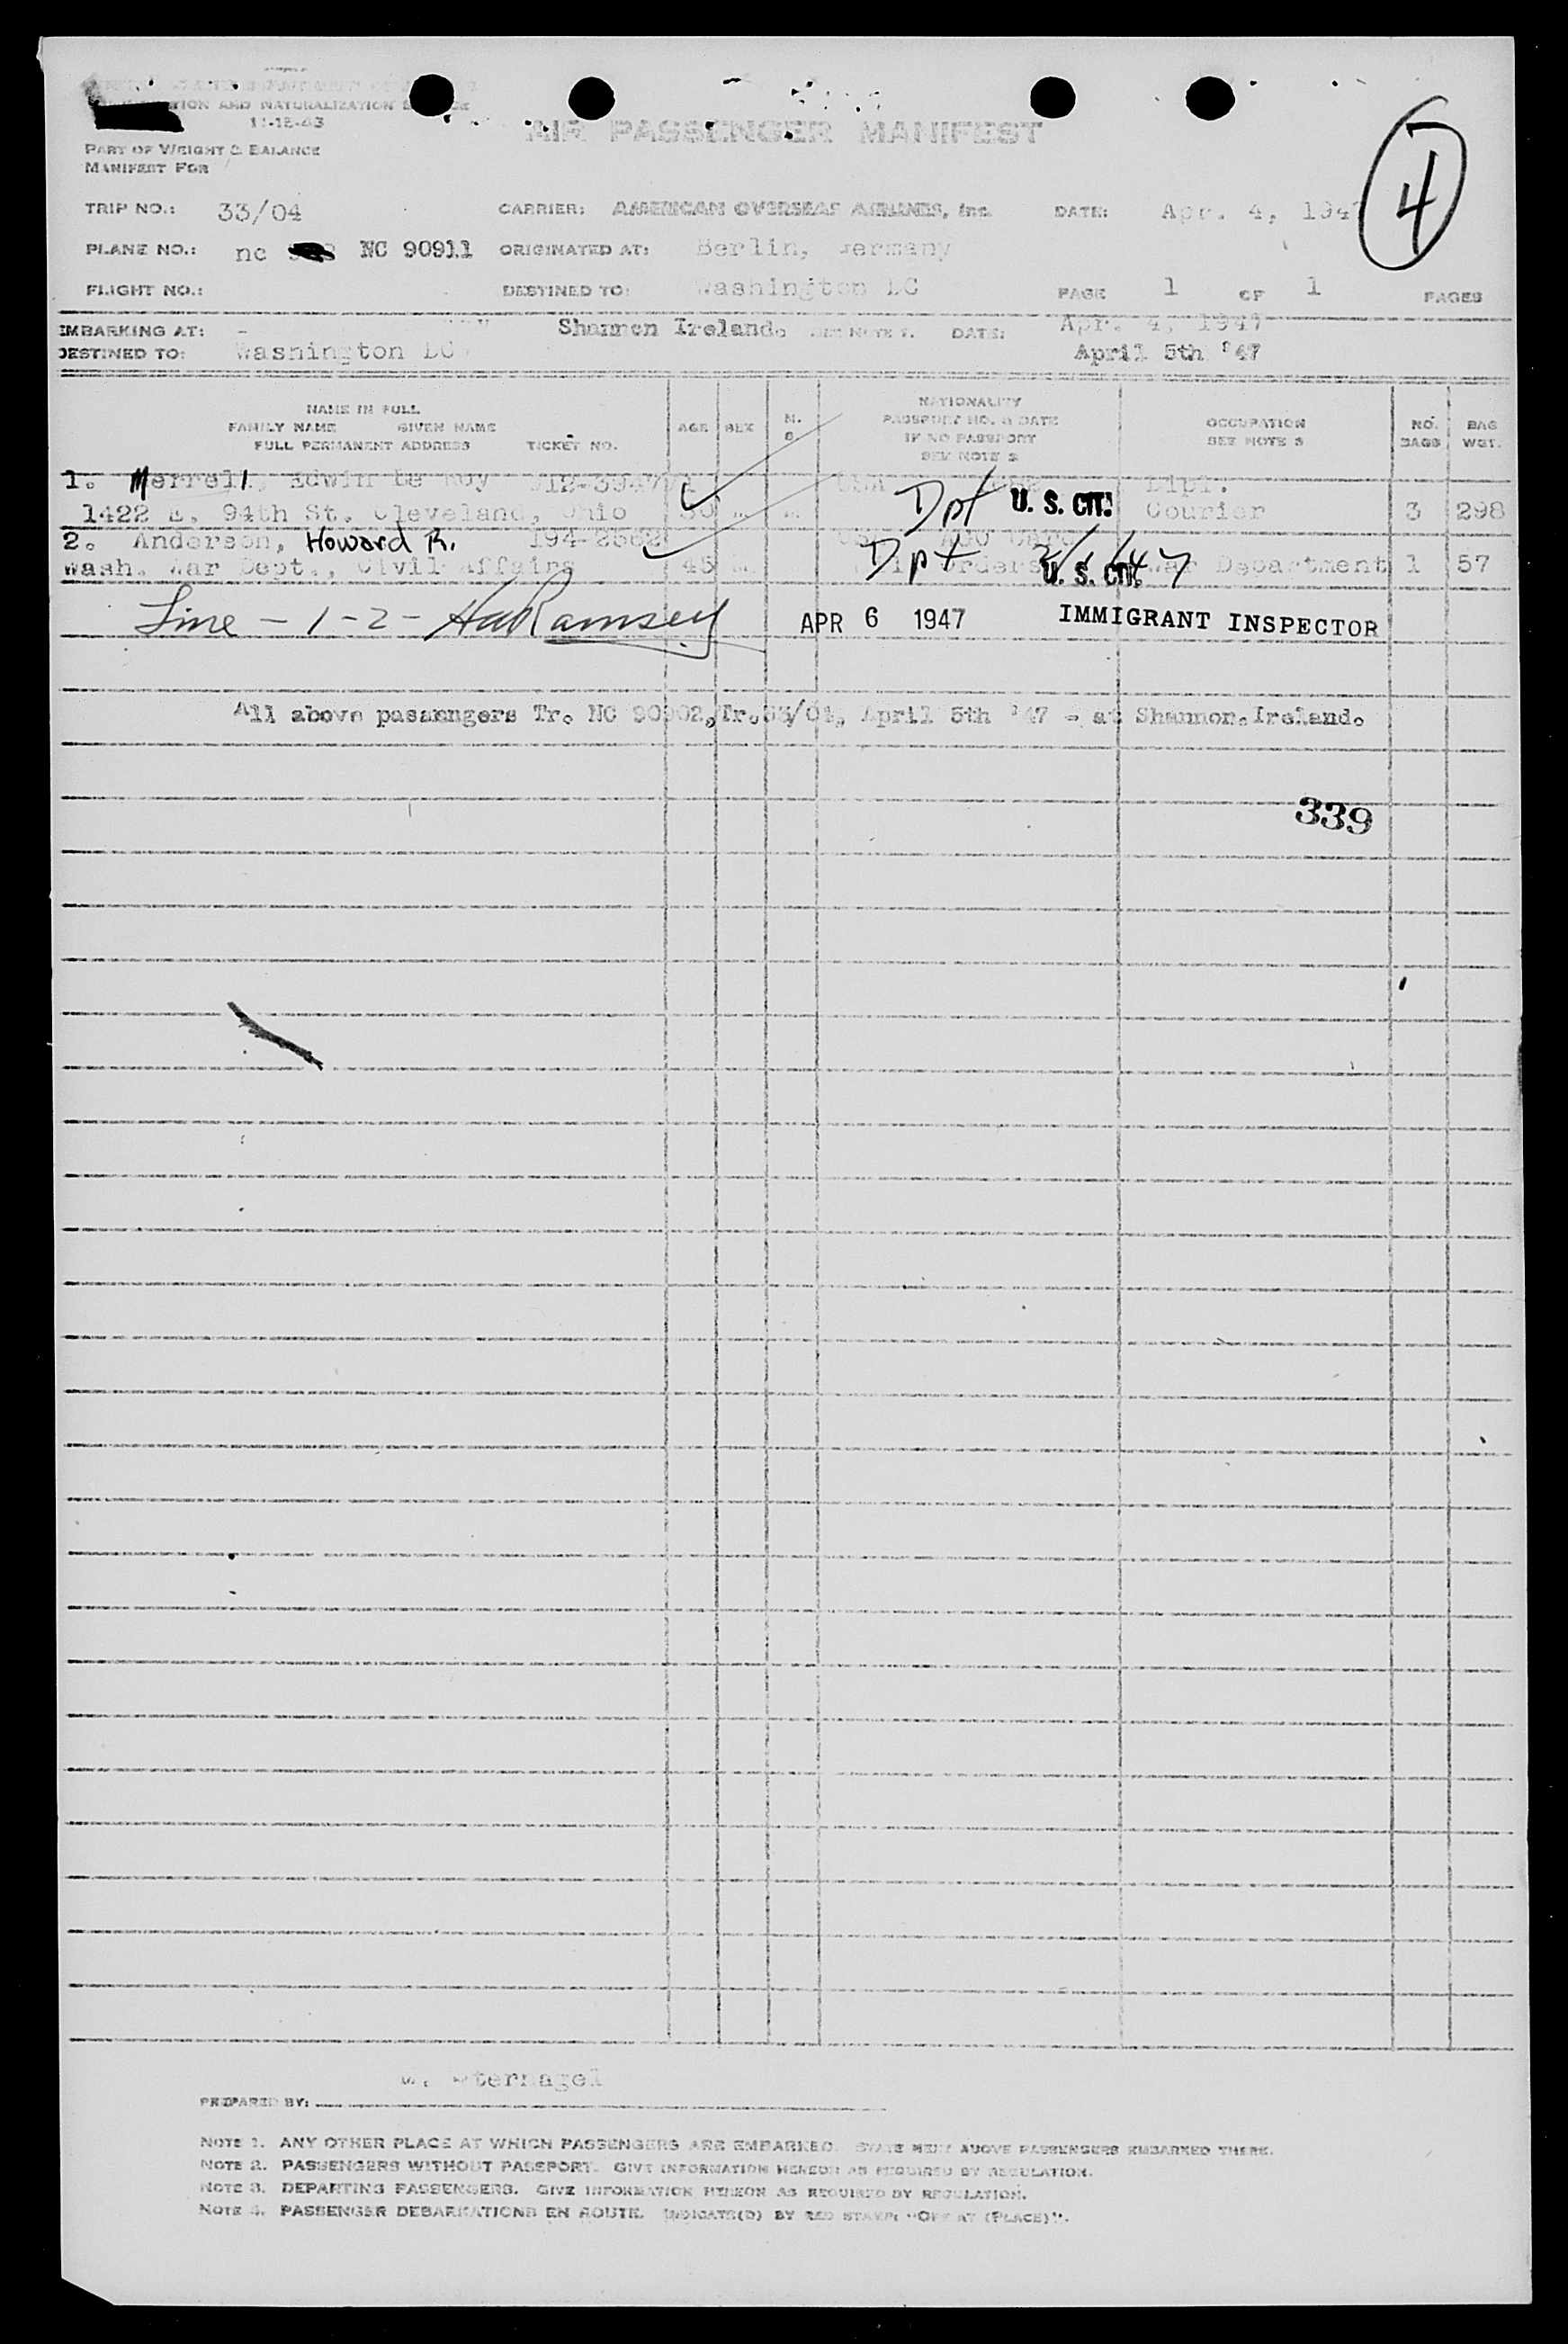 TION AND NATURALIZATION
11-15-43
AIR PASSENGER MANIFEST
4
PART OF WEIGHT & BALANCE
MANIFEST FOR
TRIP NO.: 33/04 CARRIER: AMERICAN OVERSEAS AIRLINES, Inc. DATE: Apr. 4, 1947
PLANE NO.: nc NC 90911 ORIGINATED AT: Berlin, Germany
FLIGHT NO.: DESTINED TO: Washington DC PAGE 1 OF 1 PAGES
EMBARKING AT: - Shannon Ireland. SEE NOTE 1. DATE: Apr. 4, 1947
DESTINED TO: Washington DC April 5th '47
NAME IN FULL
FAMILY NAME GIVEN NAME
FULL PERMANENT ADDRESS TICKET NO. AGE SEX M. S. NATIONALITY
PASSPORT NO. & DATE
IF NO PASSPORT
SEE NOTE 2 OCCUPATION
SEE NOTE 3 NO. BAGS BAG WGT.
1. Merrell, Edwin Le Roy USA Dipl.
1422 E. 94th St. Cleveland, Ohio 30 M. Dpt U. S. CIT. Courier 3 298
2. Anderson, Howard R. 194-2562 AGO Card
Wash. War Dept., Civil Affairs 45 M. Dpt Orders U. S. CIT. War Department 1 57
Line - 1-2- Ramsey APR 6 1947 IMMIGRANT INSPECTOR
All above pasaengers Tr. NC 90902, Tr. 33/04, April 5th '47 - at Shannon.Ireland.
339
W. Sternagel
PREPARED BY:
NOTE 1. ANY OTHER PLACE AT WHICH PASSENGERS ARE EMBARKED. STATE NEXT ABOVE PASSENGERS EMBARKED THERE.
NOTE 2. PASSENGERS WITHOUT PASSPORT. GIVE INFORMATION HEREON AS REQUIRED BY REGULATION.
NOTE 3. DEPARTING PASSENGERS. GIVE INFORMATION HEREON AS REQUIRED BY REGULATION.
NOTE 4. PASSENGER DEBARKATIONS EN ROUTE. INDICATE(D) BY RED STAMP: "OFF AT (PLACE)".